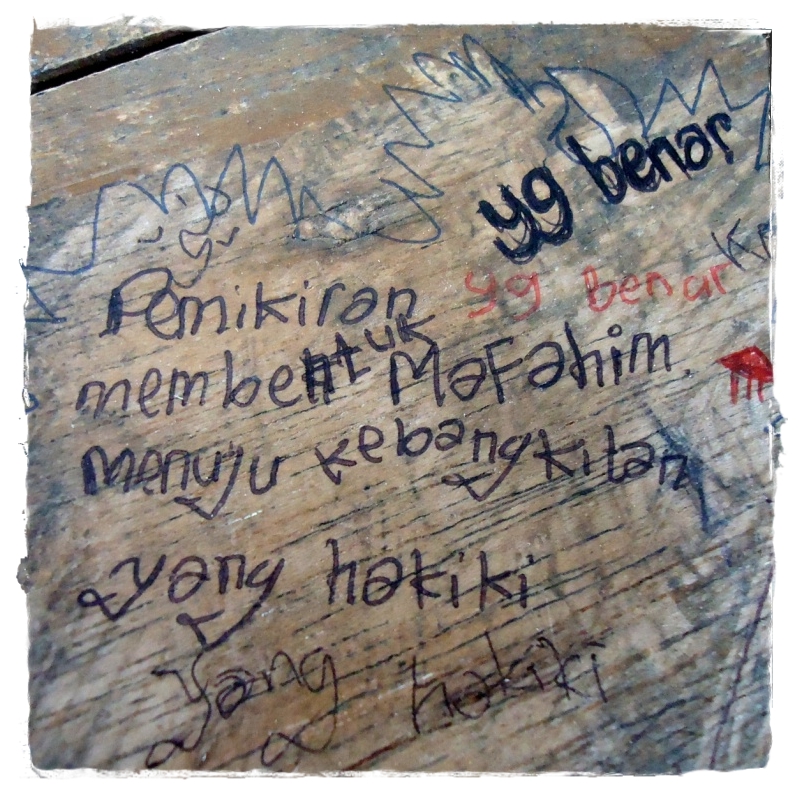 yg benar
Pemikiran yg benar
membentuk MaFahim.
menuju kebangkitan
yang hakiki
yang hakiki